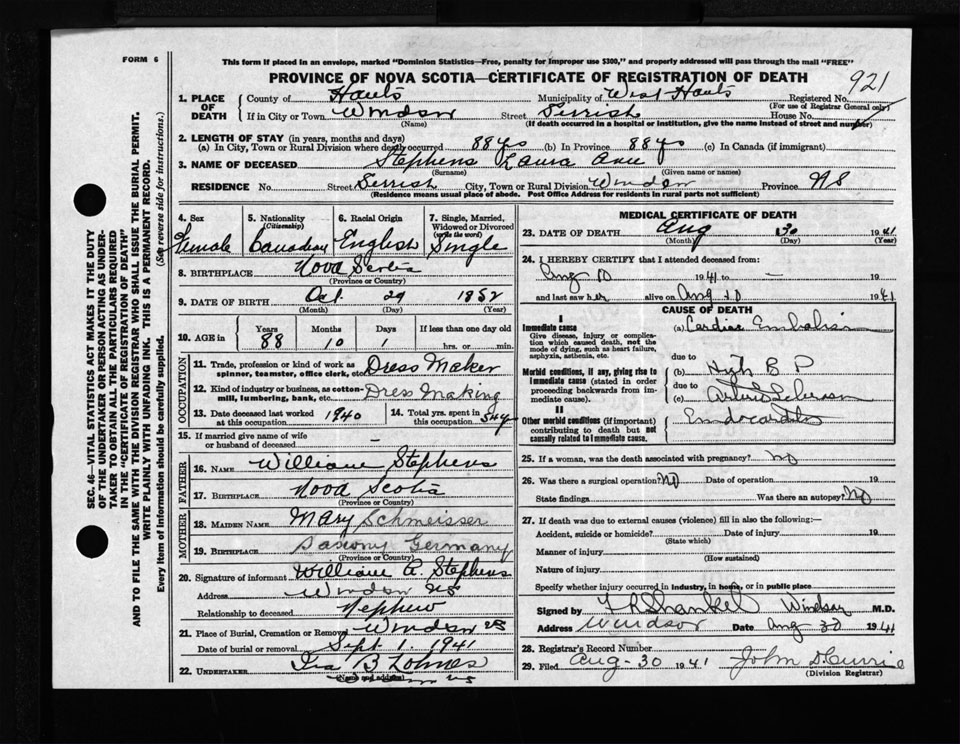 FORM 6
This form if placed in an envelope, marked "Dominion Statistics—Free, penalty for improper use $300," and properly addressed will pass through the mail "FREE"
PROVINCE OF NOVA SCOTIA—CERTIFICATE OF REGISTRATION OF DEATH
921
1. PLACE OF DEATH
County of Hants Municipality of West Hants Registered No.
(For use of Registrar General only)
If in City or Town Windsor Street Gerrish House No.
(Name) (If death occurred in a hospital or institution, give the name instead of street and number)
2. LENGTH OF STAY (in years, months and days)
(a) In City, Town or Rural Division where death occurred 88 ys (b) In Province 88 ys (c) In Canada (if immigrant)
3. NAME OF DECEASED Stephens Laura Ann
(Surname) (Given name or names)
RESIDENCE No. Street Gerrish City, Town or Rural Division Windsor Province NS
(Residence means usual place of abode. Post Office Address for residents in rural parts not sufficient)
4. Sex 5. Nationality 6. Racial Origin 7. Single, Married, Widowed or Divorced
(Citizenship) (write the word)
Female Canadian English Single
8. BIRTHPLACE Nova Scotia
(Province or Country)
9. DATE OF BIRTH Oct 29 1852
(Month) (Day) (Year)
10. AGE in Years Months Days If less than one day old
88 10 1 hrs. or min.
OCCUPATION
11. Trade, profession or kind of work as spinner, teamster, office clerk, etc. Dress Maker
12. Kind of industry or business, as cotton-mill, lumbering, bank, etc. Dress Making
13. Date deceased last worked at this occupation 1940 14. Total yrs. spent in this occupation 54 y
15. If married give name of wife or husband of deceased —
FATHER
16. NAME William Stephens
17. BIRTHPLACE Nova Scotia
(Province or Country)
MOTHER
18. MAIDEN NAME Mary Schmeisser
19. BIRTHPLACE Saxony Germany
(Province or Country)
20. Signature of informant William A. Stephens
Address Windsor NS
Relationship to deceased Nephew
21. Place of Burial, Cremation or Removal Windsor NS
Date of burial or removal Sept 1. 1941
22. UNDERTAKER Ira B Lohnes
(Name and address) Windsor NS
MEDICAL CERTIFICATE OF DEATH
23. DATE OF DEATH Aug 30 1941
(Month) (Day) (Year)
24. I HEREBY CERTIFY that I attended deceased from:
Aug 1941 to — 19
and last saw her alive on Aug 1941
CAUSE OF DEATH
I
Immediate cause (a) Cardiac Embolism
Give disease, injury or complication which caused death, not the mode of dying, such as heart failure, asphyxia, asthenia, etc.
due to
Morbid conditions, if any, giving rise to immediate cause (stated in order proceeding backwards from immediate cause). (b) High B P
due to
(c) Arterio Sclerosis
II
Other morbid conditions (if important) contributing to death but not causally related to immediate cause. Endocarditis
25. If a woman, was the death associated with pregnancy? No
26. Was there a surgical operation? No Date of operation 19
State findings Was there an autopsy? No
27. If death was due to external causes (violence) fill in also the following:—
Accident, suicide or homicide? Date of injury 19
(State which)
Manner of injury
(How sustained)
Nature of injury
Specify whether injury occurred in industry, in home, or in public place
Signed by F R Shankel Windsor M.D.
Address Windsor Date Aug 30 1941
28. Registrar's Record Number
29. Filed Aug-30 1941 John D. Currie
(Division Registrar)
SEC. 46—VITAL STATISTICS ACT MAKES IT THE DUTY
OF THE UNDERTAKER OR PERSON ACTING AS UNDER-
TAKER TO OBTAIN ALL THE PARTICULARS REQUIRED
IN THE "CERTIFICATE OF REGISTRATION OF DEATH"
AND TO FILE THE SAME WITH THE DIVISION REGISTRAR WHO SHALL ISSUE THE BURIAL PERMIT.
WRITE PLAINLY WITH UNFADING INK. THIS IS A PERMANENT RECORD.
Every item of information should be carefully supplied. (See reverse side for instructions.)